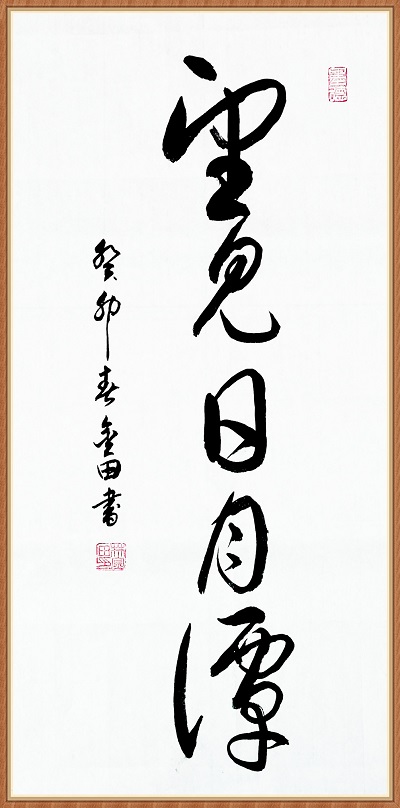 望見日月潭
癸卯春金田書